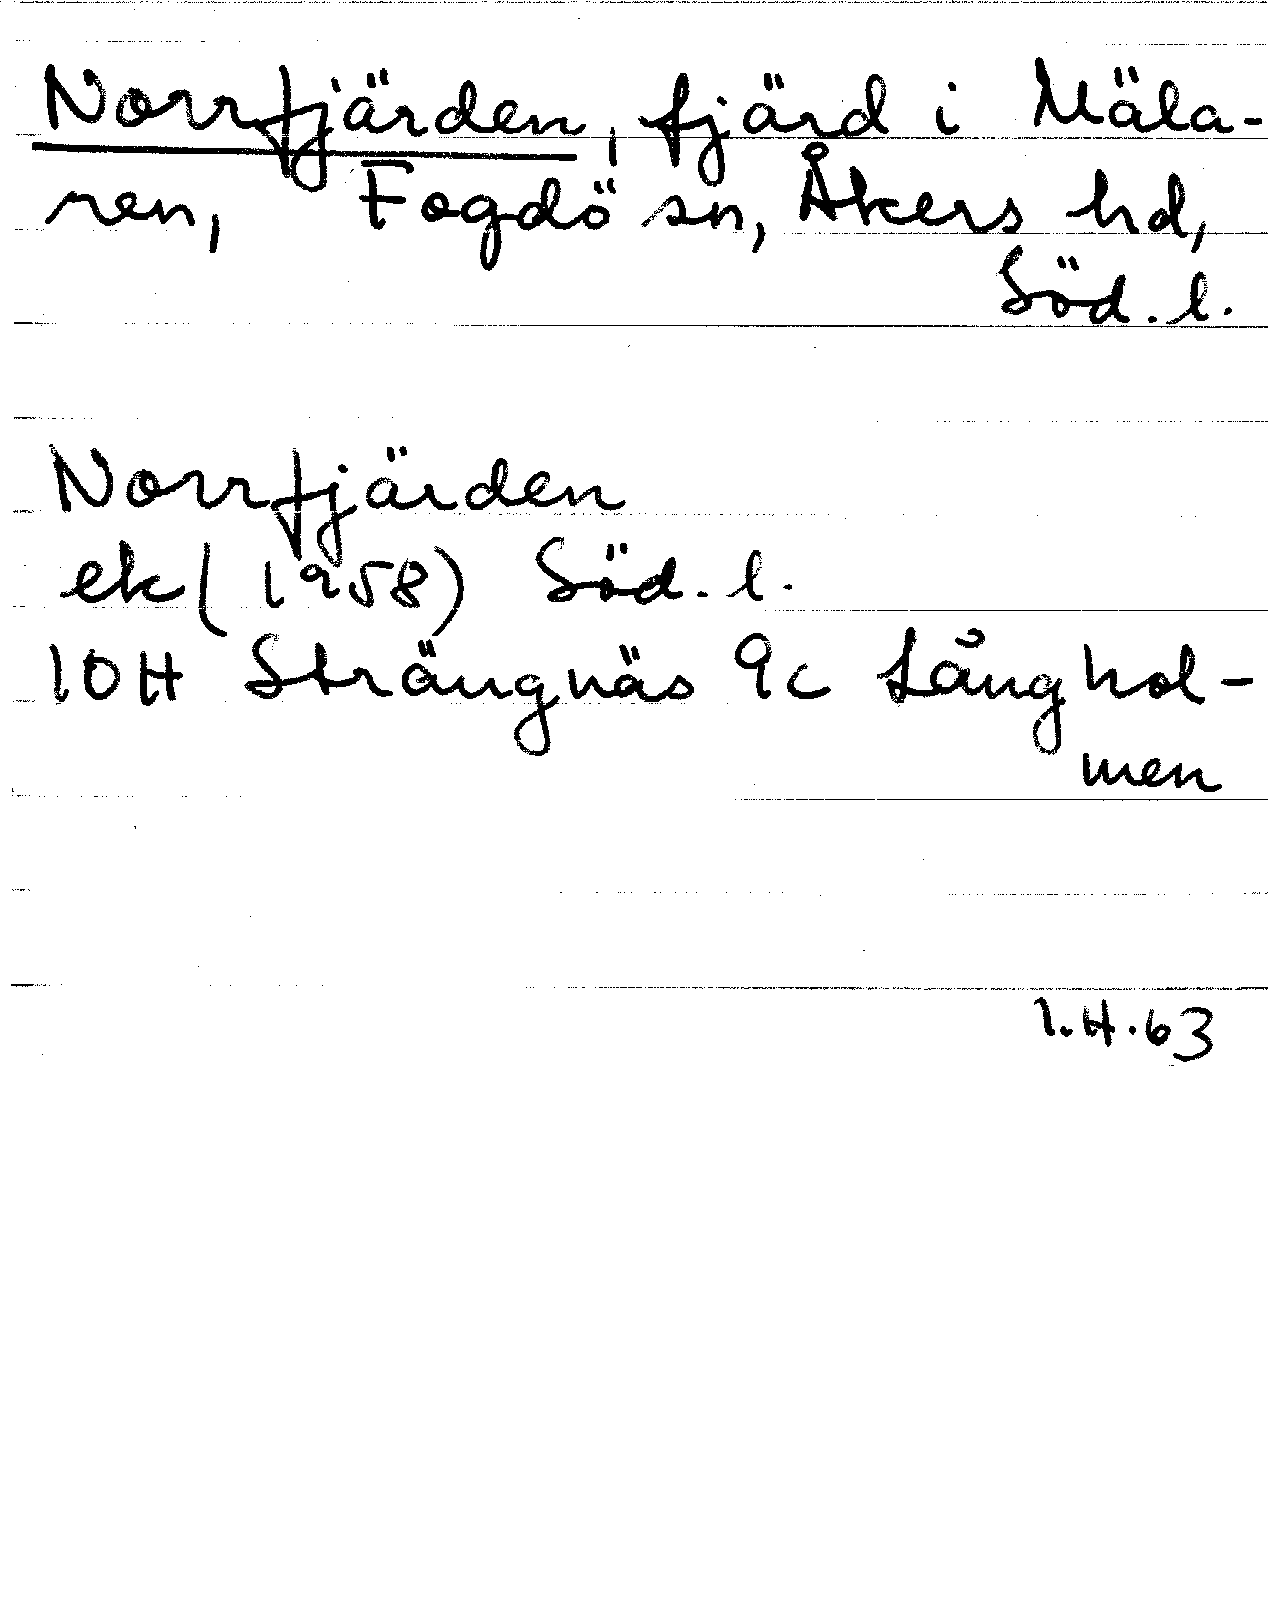 Norrfjärden, fjärd i Mäla-
ren, Fogdö sn, Åkers hd,
Söd. l.
Norrfjärden
ek (1958) Söd. l.
10H Strängnäs 9c Långhol-
men
1.H.63